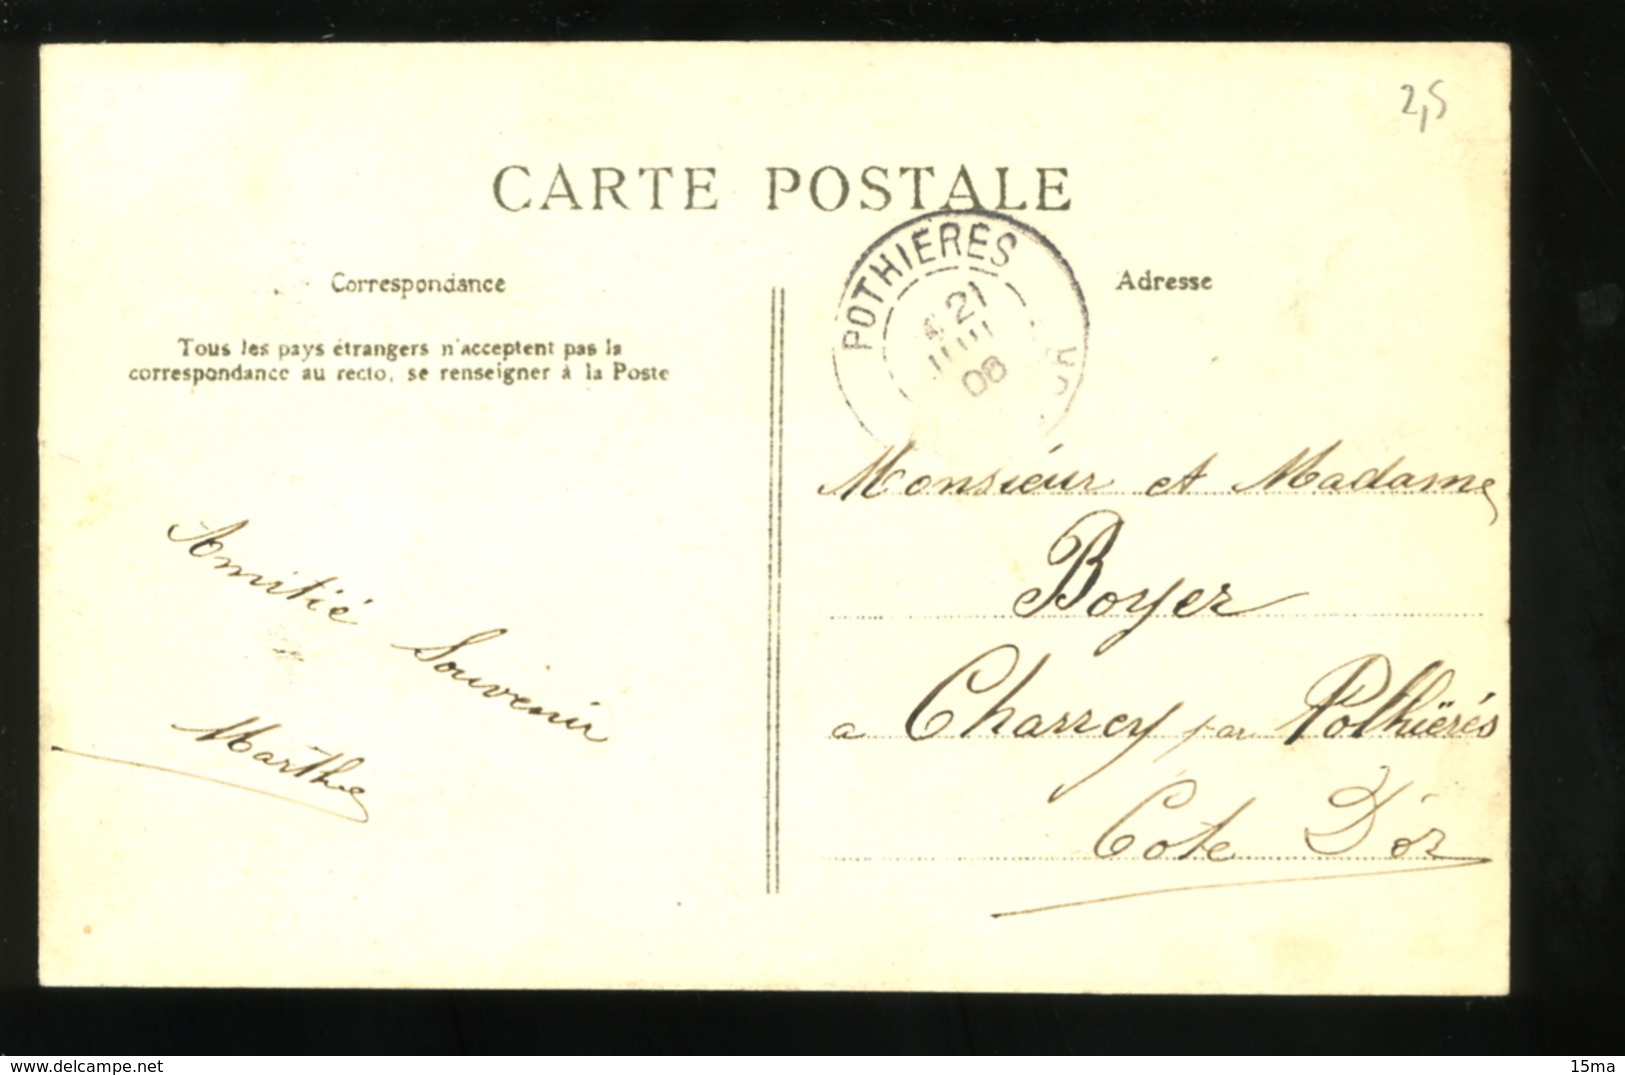 2,5
CARTE POSTALE
Correspondance
Tous les pays étrangers n'acceptent pas la
correspondance au recto, se renseigner à la Poste
Amitié Souvenir
Marthe
POTHIERES
21
08
Adresse
Monsieur et Madame
Boyer
a Charrey par Pothiërés
Cote D'or
https://www.delcampe.net
15ma